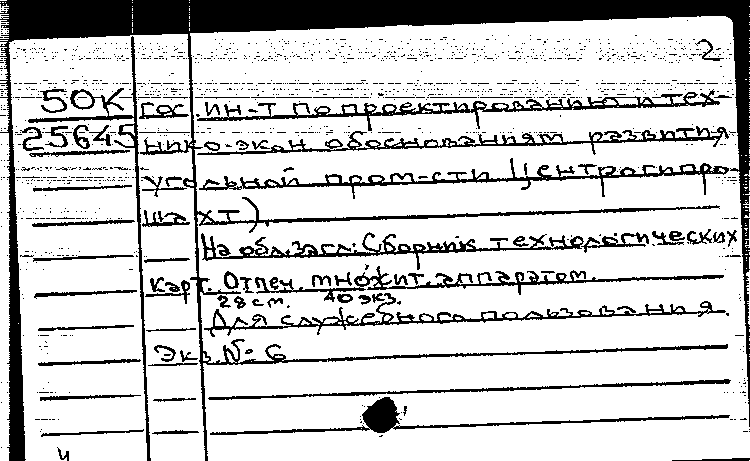 2
50К гос. ин-т по проектированию и тех-
25645 нико-экон обоснованиям развития
угольной пром-сти Центрогипро-
шахт).
На обл. загл: Сборник технологических
карт. Отпеч. множит. аппаратом.
28 см. 40 экз.
Для служебного пользования.
Экз. № 6
4